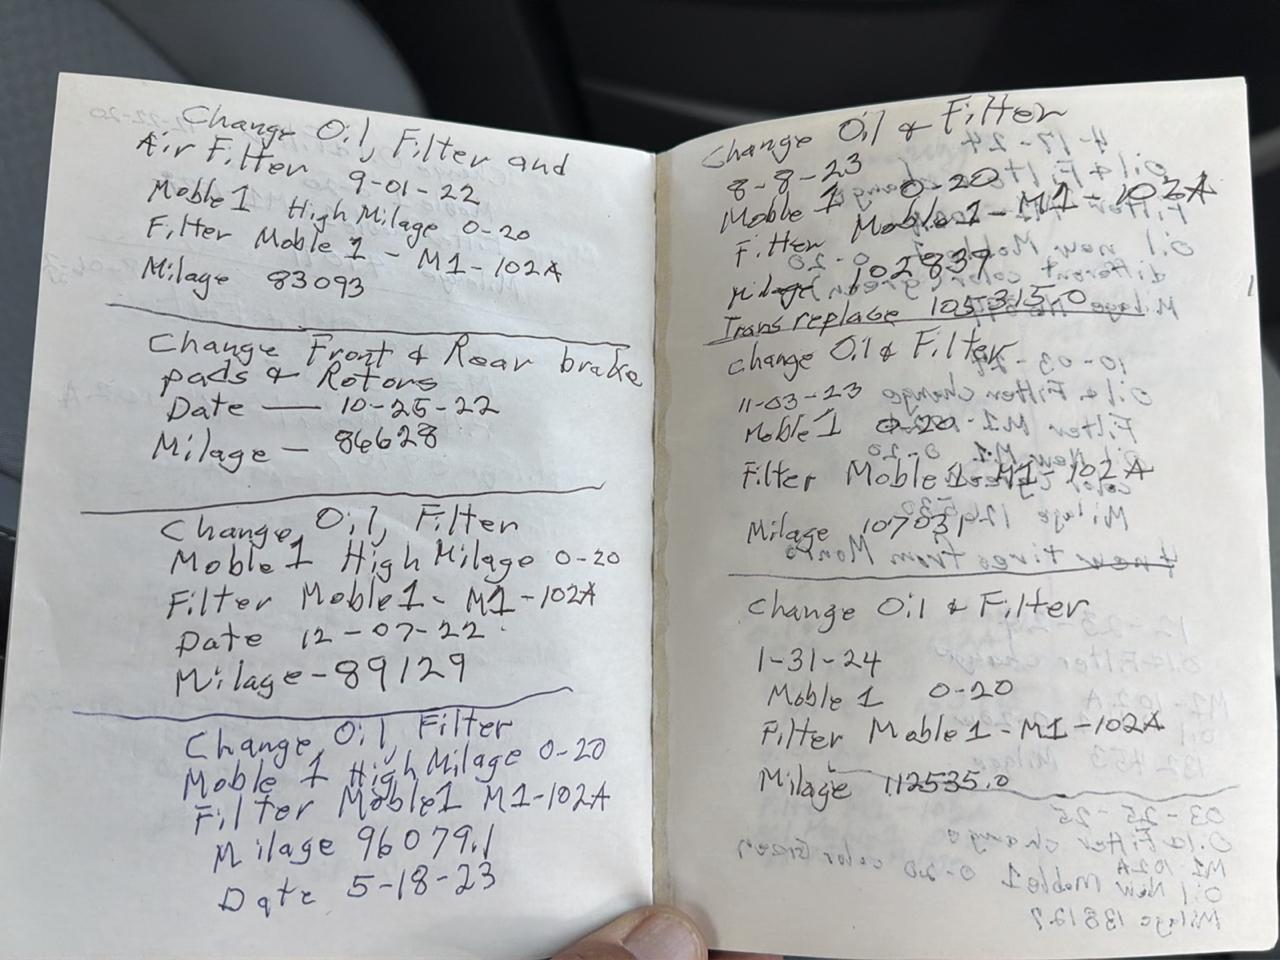 Change Oil, Filter and
Air Filter 9-01-22
Moble 1 High Milage 0-20
Filter Moble 1 - M1-102A
Milage 83093
Change Front & Rear brake
pads & Rotors
Date — 10-25-22
Milage — 86628
Change Oil, Filter
Moble 1 High Milage 0-20
Filter Moble 1 - M1-102A
Date 12-07-22
Milage - 89129
Change Oil, Filter
Moble 1 High Milage 0-20
Filter Moble 1 M1-102A
Milage 96079.1
Date 5-18-23
Change Oil & Filter
8-8-23
Moble 1 0-20
Filter Moble 1 - M1-102A
Milage 102839
Trans replase 105315.0
Change Oil & Filter
11-03-23
Moble 1 0-20
Filter Moble 1 - M1-102A
Milage 107031
Change Oil & Filter
1-31-24
Moble 1 0-20
Filter Moble 1 - M1-102A
Milage 112535.0